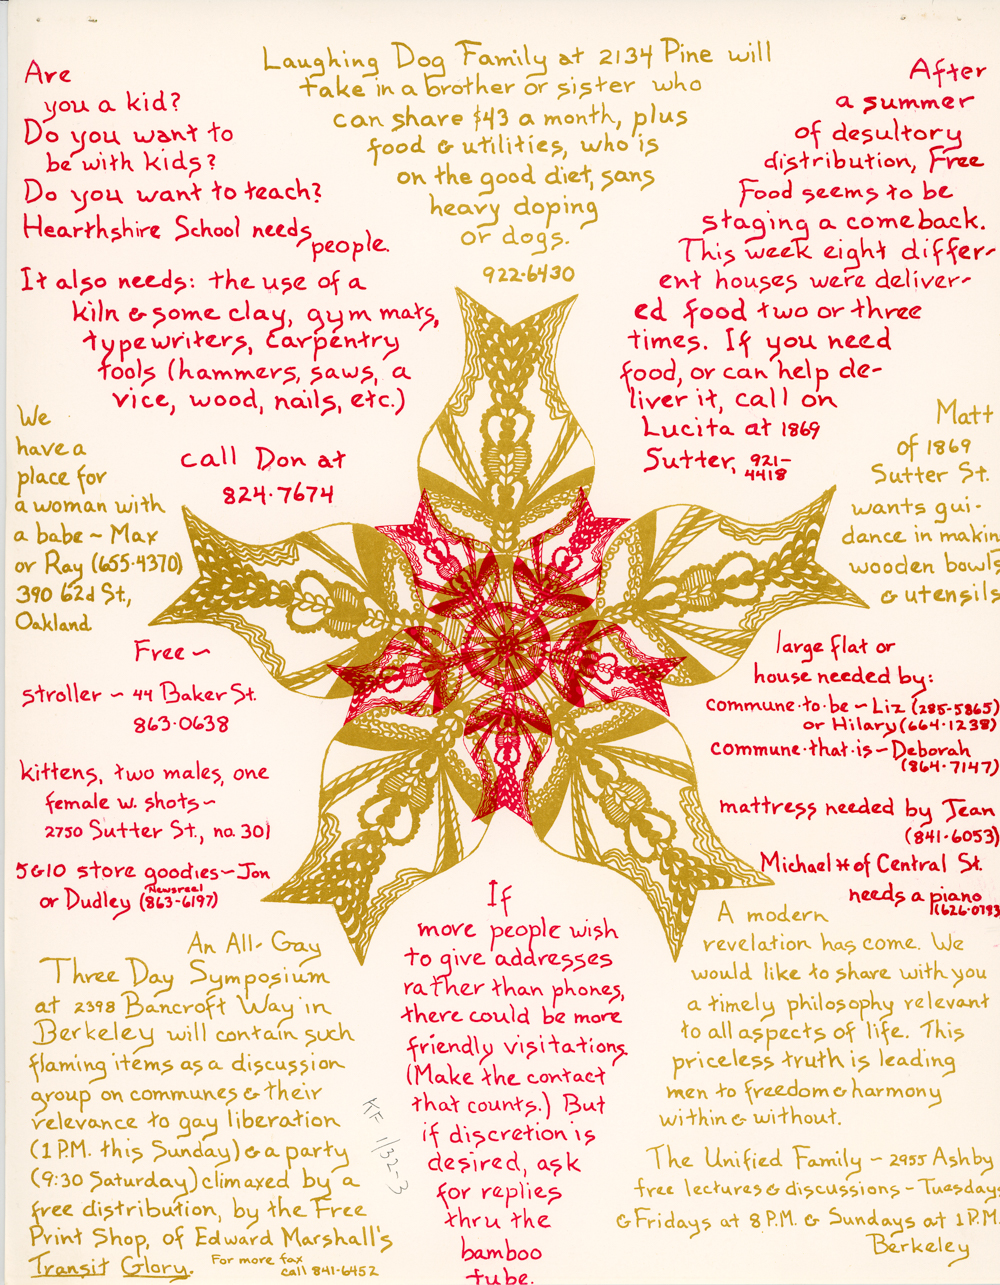 Laughing Dog Family at 2134 Pine will
take in a brother or sister who
can share $43 a month, plus
food & utilities, who is
on the good diet, sans
heavy doping
or dogs.
922-6430
Are
you a kid?
Do you want to
be with kids?
Do you want to teach?
Hearthshire School needs
people.
It also needs: the use of a
kiln & some clay, gym mats,
typewriters, carpentry
tools (hammers, saws, a
vice, wood, nails, etc.)
call Don at
824-7674
After
a summer
of desultory
distribution, Free
Food seems to be
staging a comeback.
This week eight differ-
ent houses were deliver-
ed food two or three
times. If you need
food, or can help de-
liver it, call on
Lucita at 1869
Sutter, 921-
4418
We
have a
place for
a woman with
a babe ~ Max
or Ray (655-4370)
390 62d St.,
Oakland
Matt
of 1869
Sutter St.
wants gui-
dance in makin
wooden bowls
& utensils
Free ~
stroller ~ 44 Baker St.
863-0638
kittens, two males, one
female w. shots ~
2750 Sutter St., no. 301
5&10 store goodies ~ Jon
or Dudley (863-6197)
Newsreel
large flat or
house needed by:
commune-to-be ~ Liz (285-5865)
or Hilary (664-1238)
commune-that-is ~ Deborah
(864-7147)
mattress needed by Jean
(841-6053)
Michael H of Central St.
needs a piano
(626-0793
An All-Gay
Three Day Symposium
at 2398 Bancroft Way in
Berkeley will contain such
flaming items as a discussion
group on communes & their
relevance to gay liberation
(1 P.M. this Sunday) & a party
(9:30 Saturday) climaxed by a
free distribution, by the Free
Print Shop, of Edward Marshall's
Transit Glory. For more fax
call 841-6452
If
more people wish
to give addresses
rather than phones,
there could be more
friendly visitations.
(Make the contact
that counts.) But
if discretion is
desired, ask
for replies
thru the
bamboo
tube.
KF 1/32-3
A modern
revelation has come. We
would like to share with you
a timely philosophy relevant
to all aspects of life. This
priceless truth is leading
men to freedom & harmony
within & without.
The Unified Family ~ 2955 Ashby
free lectures & discussions - Tuesdays
& Fridays at 8 P.M. & Sundays at 1 P.M.
Berkeley